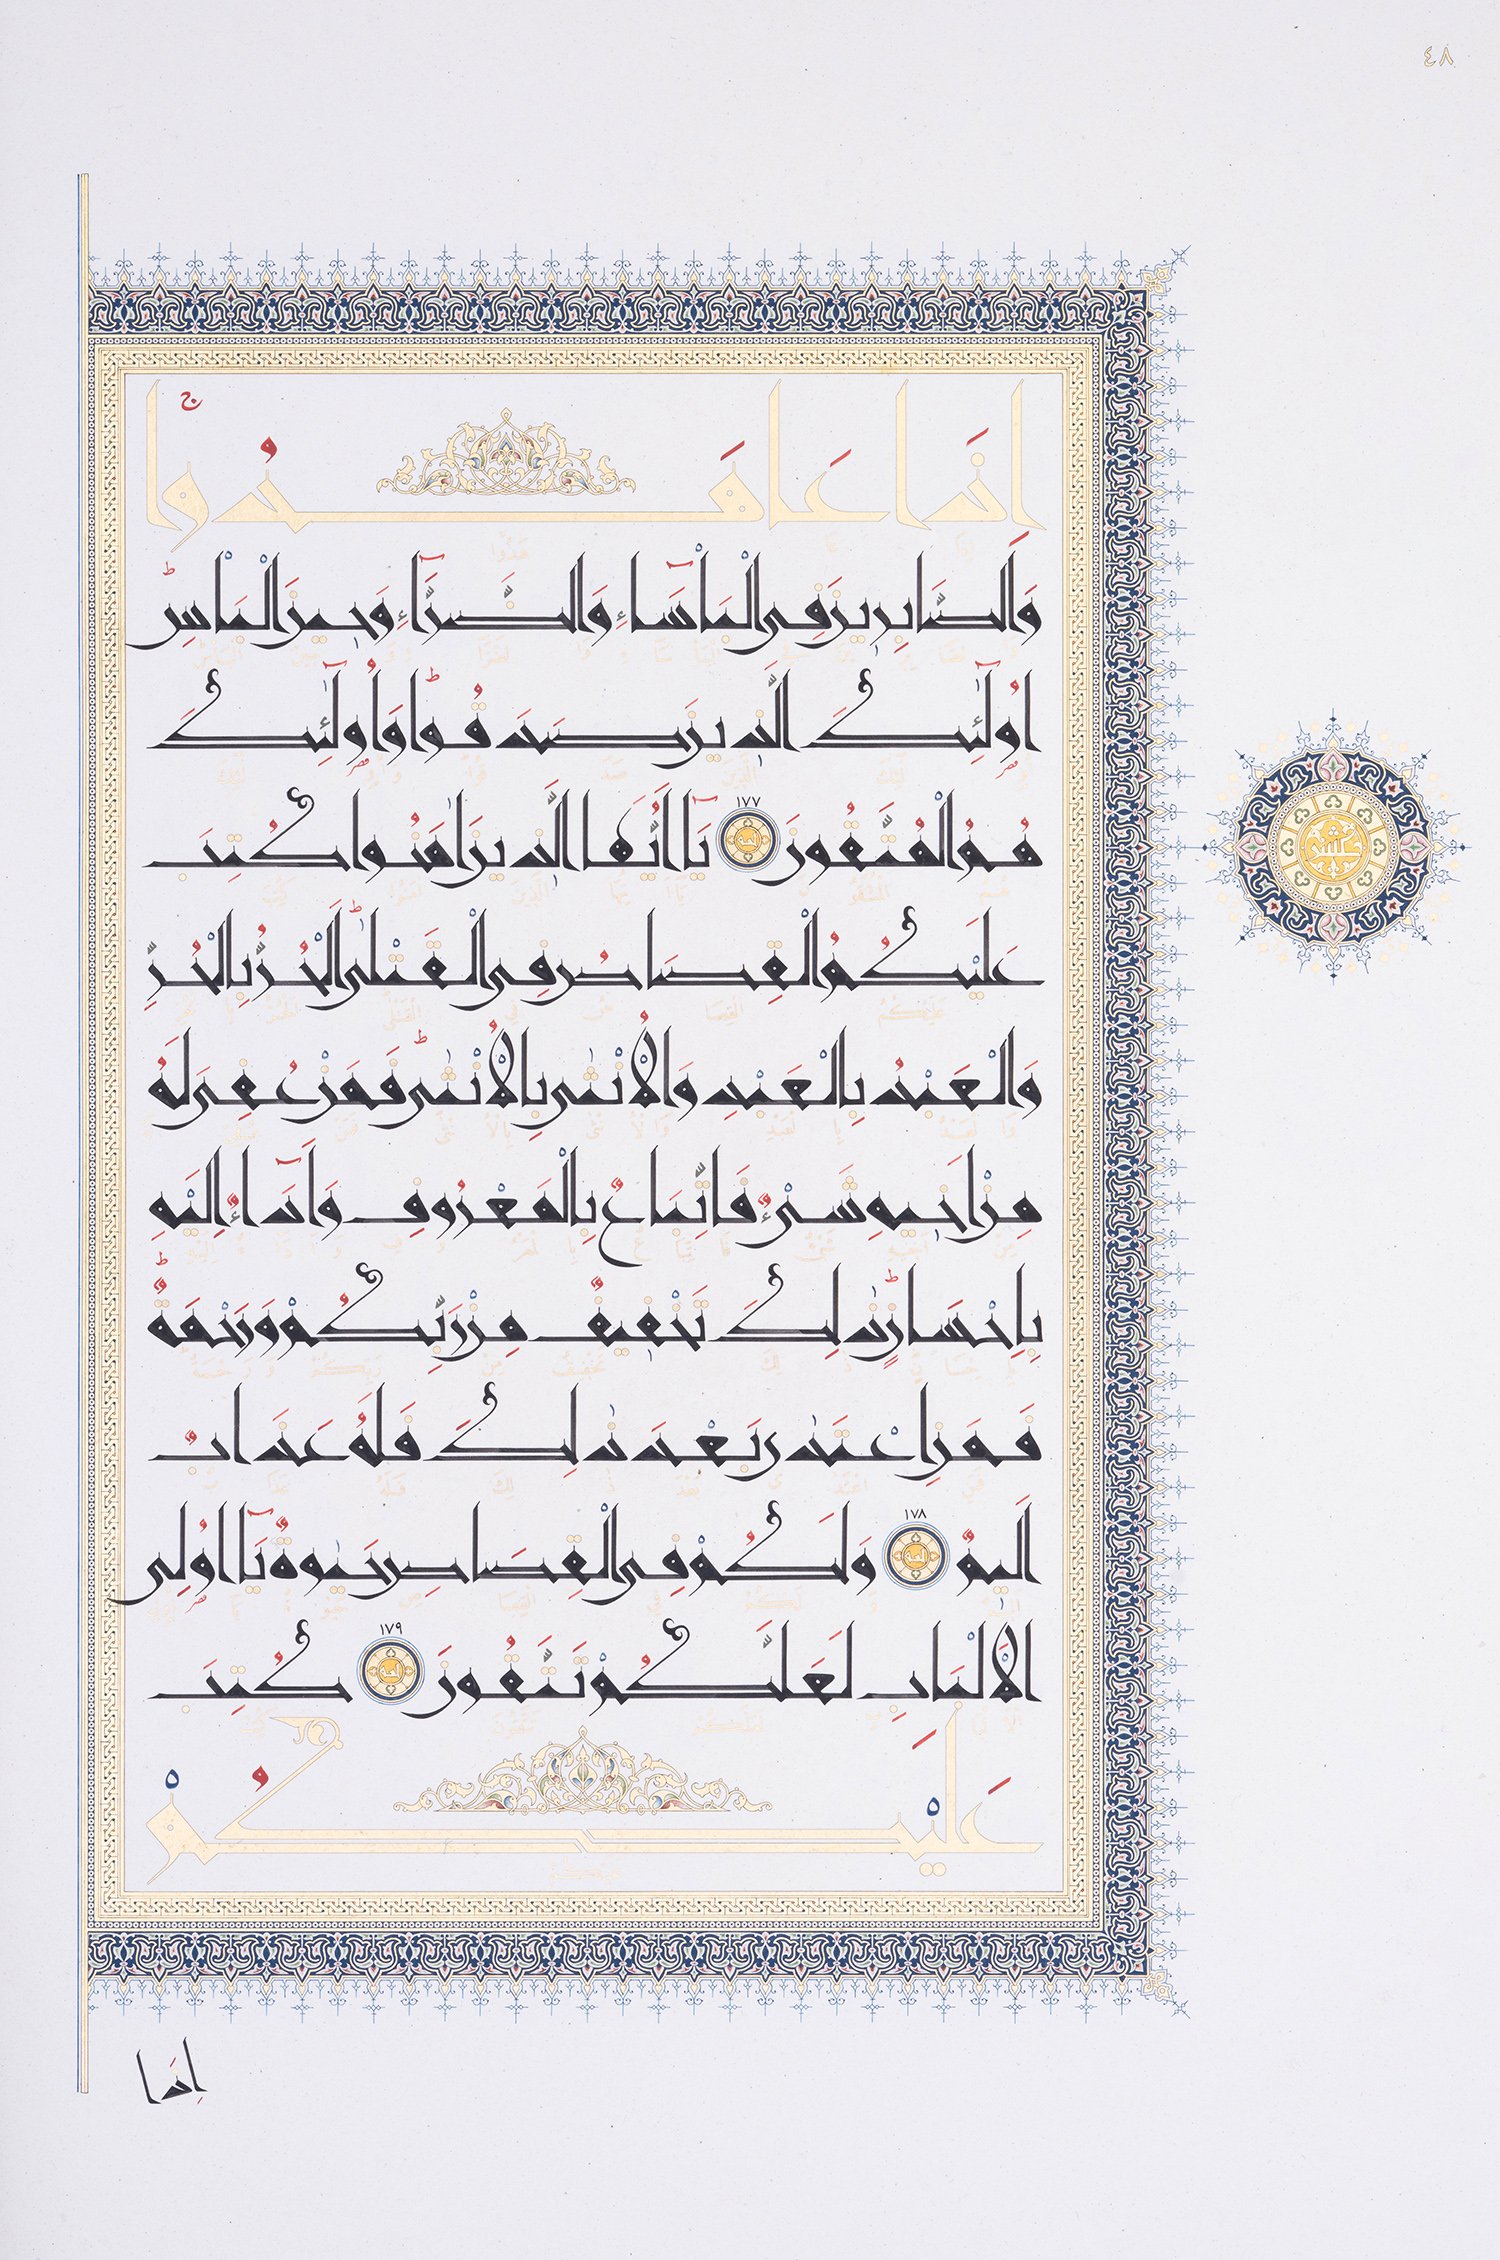 ٤٨
إِذَا عَاهَدُوا ۖ
وَالصَّابِرِينَ فِي الْبَأْسَاءِ وَالضَّرَّاءِ وَحِينَ الْبَأْسِ ۗ
أُولَٰئِكَ الَّذِينَ صَدَقُوا ۖ وَأُولَٰئِكَ
هُمُ الْمُتَّقُونَ ١٧٧ يَا أَيُّهَا الَّذِينَ آمَنُوا كُتِبَ
عَلَيْكُمُ الْقِصَاصُ فِي الْقَتْلَى ۖ الْحُرُّ بِالْحُرِّ
وَالْعَبْدُ بِالْعَبْدِ وَالْأُنْثَىٰ بِالْأُنْثَىٰ ۚ فَمَنْ عُفِيَ لَهُ
مِنْ أَخِيهِ شَيْءٌ فَاتِّبَاعٌ بِالْمَعْرُوفِ وَأَدَاءٌ إِلَيْهِ
بِإِحْسَانٍ ۗ ذَٰلِكَ تَخْفِيفٌ مِنْ رَبِّكُمْ وَرَحْمَةٌ ۗ
فَمَنِ اعْتَدَىٰ بَعْدَ ذَٰلِكَ فَلَهُ عَذَابٌ
أَلِيمٌ ١٧٨ وَلَكُمْ فِي الْقِصَاصِ حَيَوٰةٌ يَا أُولِي
الْأَلْبَابِ لَعَلَّكُمْ تَتَّقُونَ ١٧٩ كُتِبَ
عَلَيْكُمْ
إِذَا